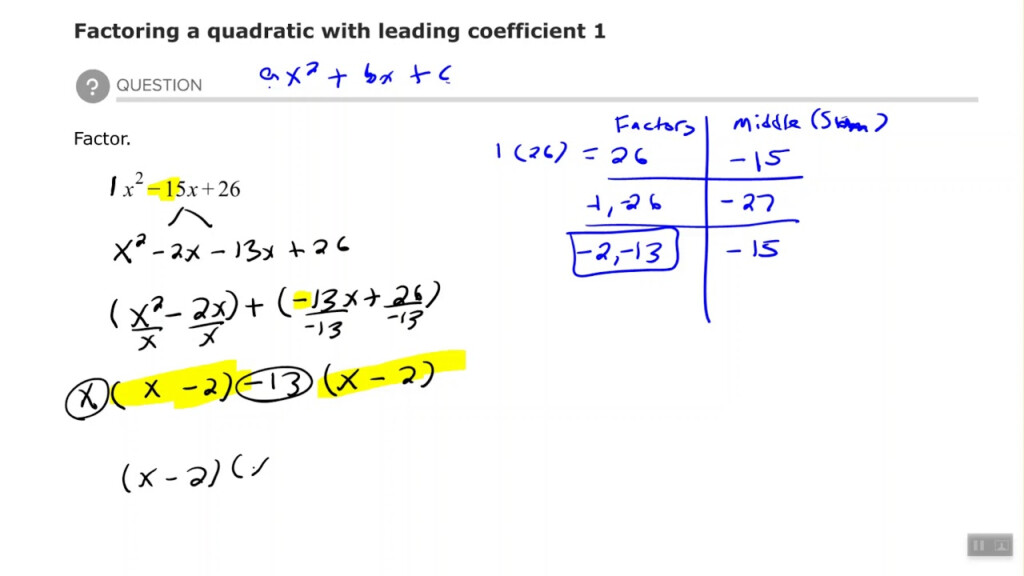 Factoring a quadratic with leading coefficient 1
? QUESTION
ax² + bx + c
Factor.
1x² − 15x + 26
x² − 2x − 13x + 26
(x²/x − 2x/x) + (−13x/−13 + 26/−13)
x(x − 2) −13(x − 2)
(x − 2)(
Factors Middle (Sum)
1(26) = 26 −15
-1, -26 −27
−2, −13 −15